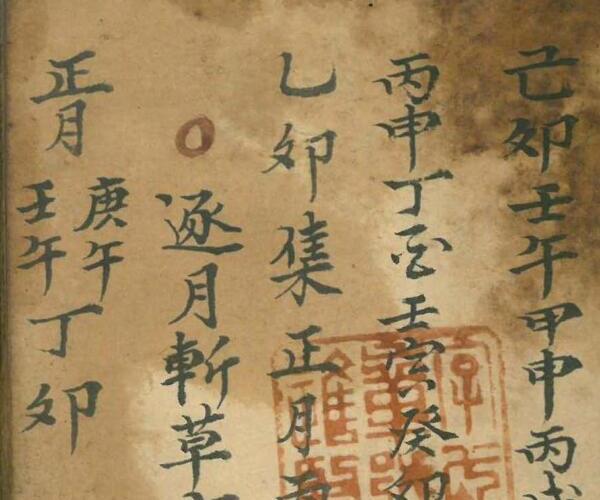 己夘壬午甲申丙
丙申丁酉壬寅癸夘
乙夘集正月
○逐月斬草
正月庚午壬午丁夘